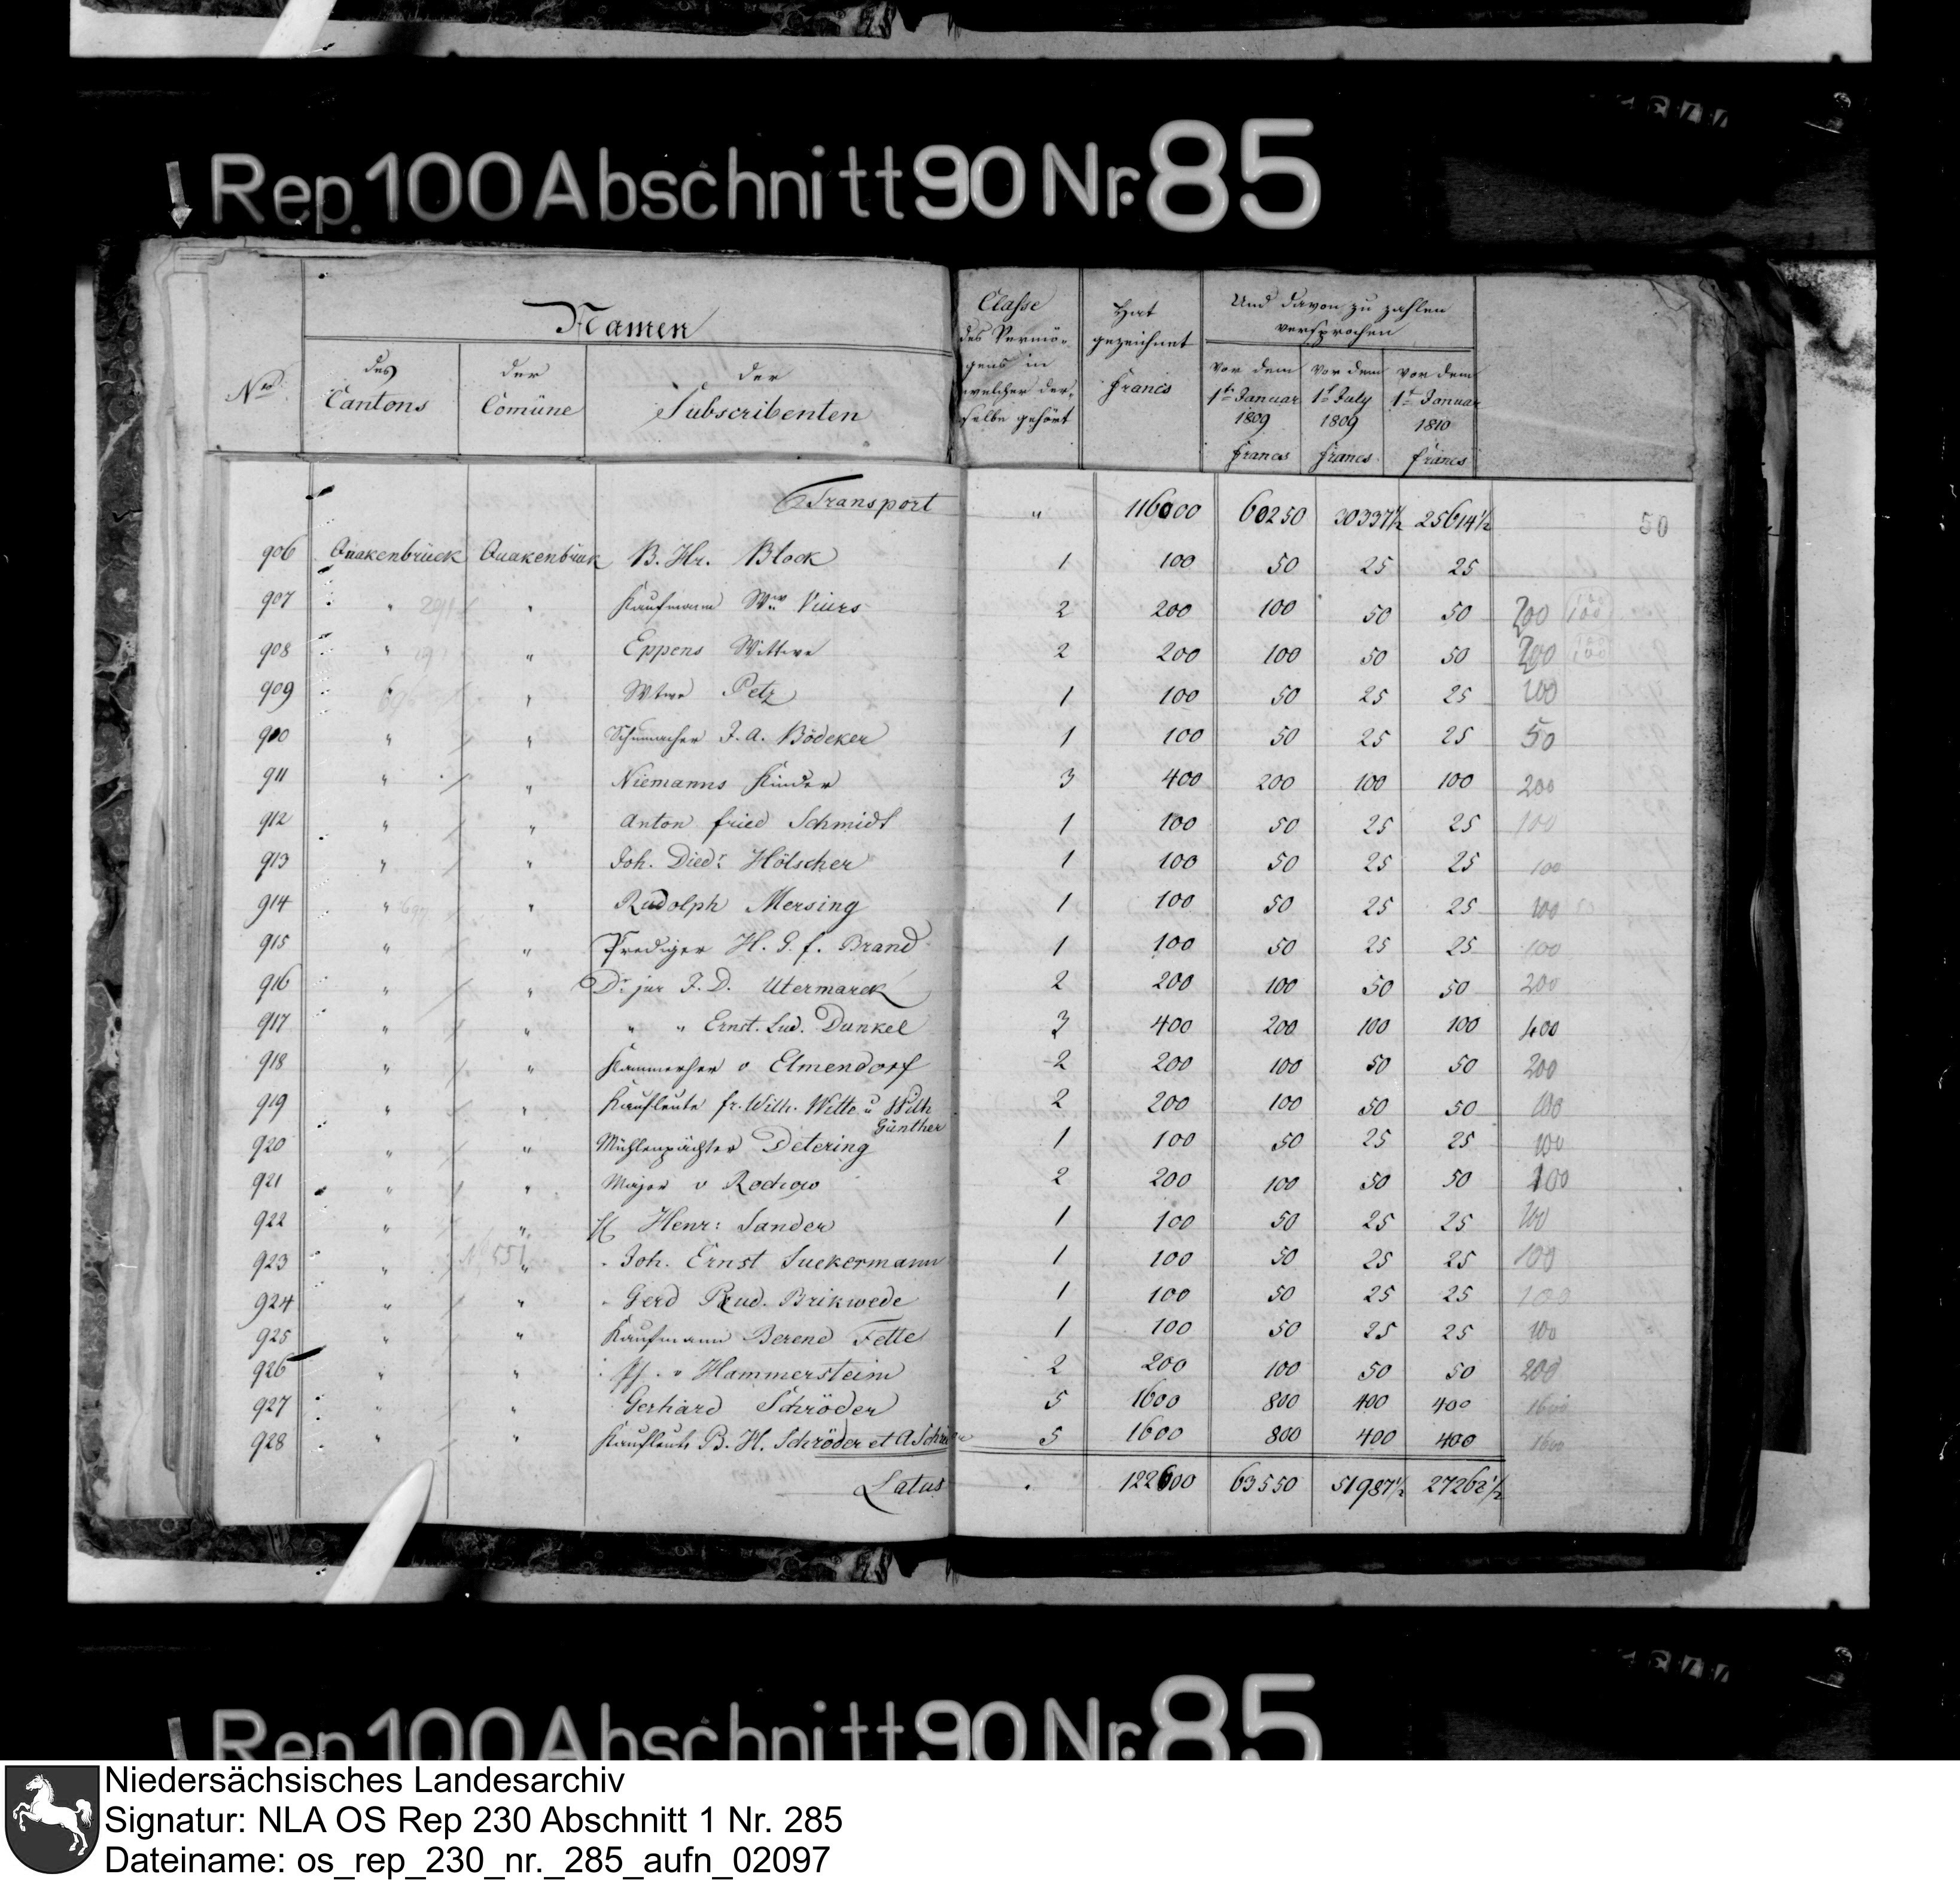 Rep. 100 Abschnitt 90 Nr. 85
Namen
No. des Cantons der Comüne der Subscribenten
Classe des Vermögens in welcher derselbe gehört
Hat gezeichnet Francs
Und davon zu zahlen versprochen
vor dem 1ten Januar 1809 Francs
vor dem 1t July 1809 Francs
vor dem 1t Januar 1810 Francs
Transport " 116000 60250 30337½ 25614½ 50
906 Quakenbrück Quakenbrück B. Hr. Block 1 100 50 25 25
907 " " Kaufmann Ww 2 200 100 50 50 200 100
908 " " Eppens Wittwe 2 200 100 50 50 200 100
909 " " Wtwe Petz 1 100 50 25 25 100
900 " " Schumacher J. A. Bödeker 1 100 50 25 25 50
911 " " Niemanns Kinder 3 400 200 100 100 200
912 " " Anton Fried Schmidt 1 100 50 25 25 100
913 " " Joh. Died: Hölscher 1 100 50 25 25 100
914 " " Rudolph Mersing 1 100 50 25 25 100 50
915 " " Prediger H. G. F. Brand 1 100 50 25 25 100
916 " " Dr jur J. D. Utermarck 2 200 100 50 50 200
917 " " " " Ernst. Lud. Dunkel 3 400 200 100 100 400
918 " " Kammerher v Elmendorf 2 200 100 50 50 200
919 " " Kaufleute Fr. Wilh. Witte u Wilh Günther 2 200 100 50 50 100
920 " " Mühlenpächter Detering 1 100 50 25 25 100
921 " " Major v Rochow 2 200 100 50 50 100
922 " " H Henr: Sander 1 100 50 25 25 100
923 " N 551 " " Joh. Ernst Suckermann 1 100 50 25 25 100
924 " " " Gerd Rud. Brikwede 1 100 50 25 25 100
925 " " Kaufmann Berend Fette 1 100 50 25 25 100
926 " " v Hammerstein 2 200 100 50 50 200
927 " " Gerhard Schröder 5 1600 800 400 400 1600
928 " " Kaufleute B. H. Schröder et A Schröder 5 1600 800 400 400 1600
Latus 122600 63550 51987½ 27262½
Rep. 100 Abschnitt 90 Nr. 85
Niedersächsisches Landesarchiv
Signatur: NLA OS Rep 230 Abschnitt 1 Nr. 285
Dateiname: os_rep_230_nr._285_aufn_02097